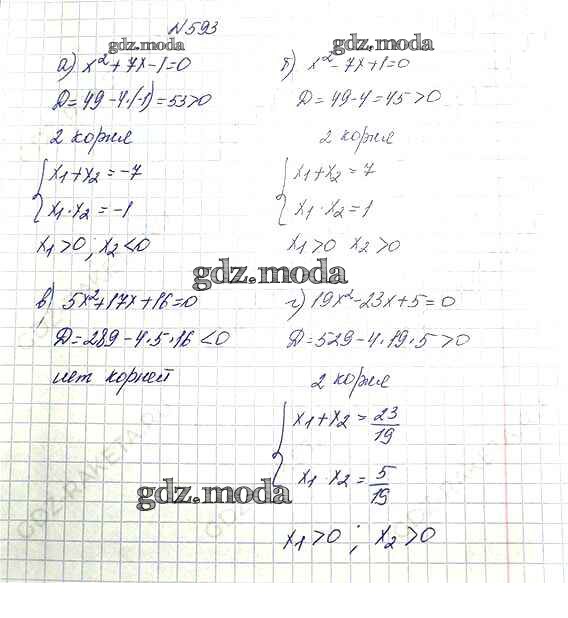 №593
gdz.moda
gdz.moda
а) x²+7x-1=0
D=49-4·(-1)=53>0
2 корня
x₁+x₂=-7
x₁·x₂=-1
x₁>0; x₂<0
б) x²-7x+1=0
D=49-4=45>0
2 корня
x₁+x₂=7
x₁·x₂=1
x₁>0 x₂>0
gdz.moda
в) 5x²+17x+16=0
D=289-4·5·16<0
нет корней
г) 19x²-23x+5=0
D=529-4·19·5>0
2 корня
x₁+x₂=23/19
x₁·x₂=5/19
x₁>0; x₂>0
gdz.moda